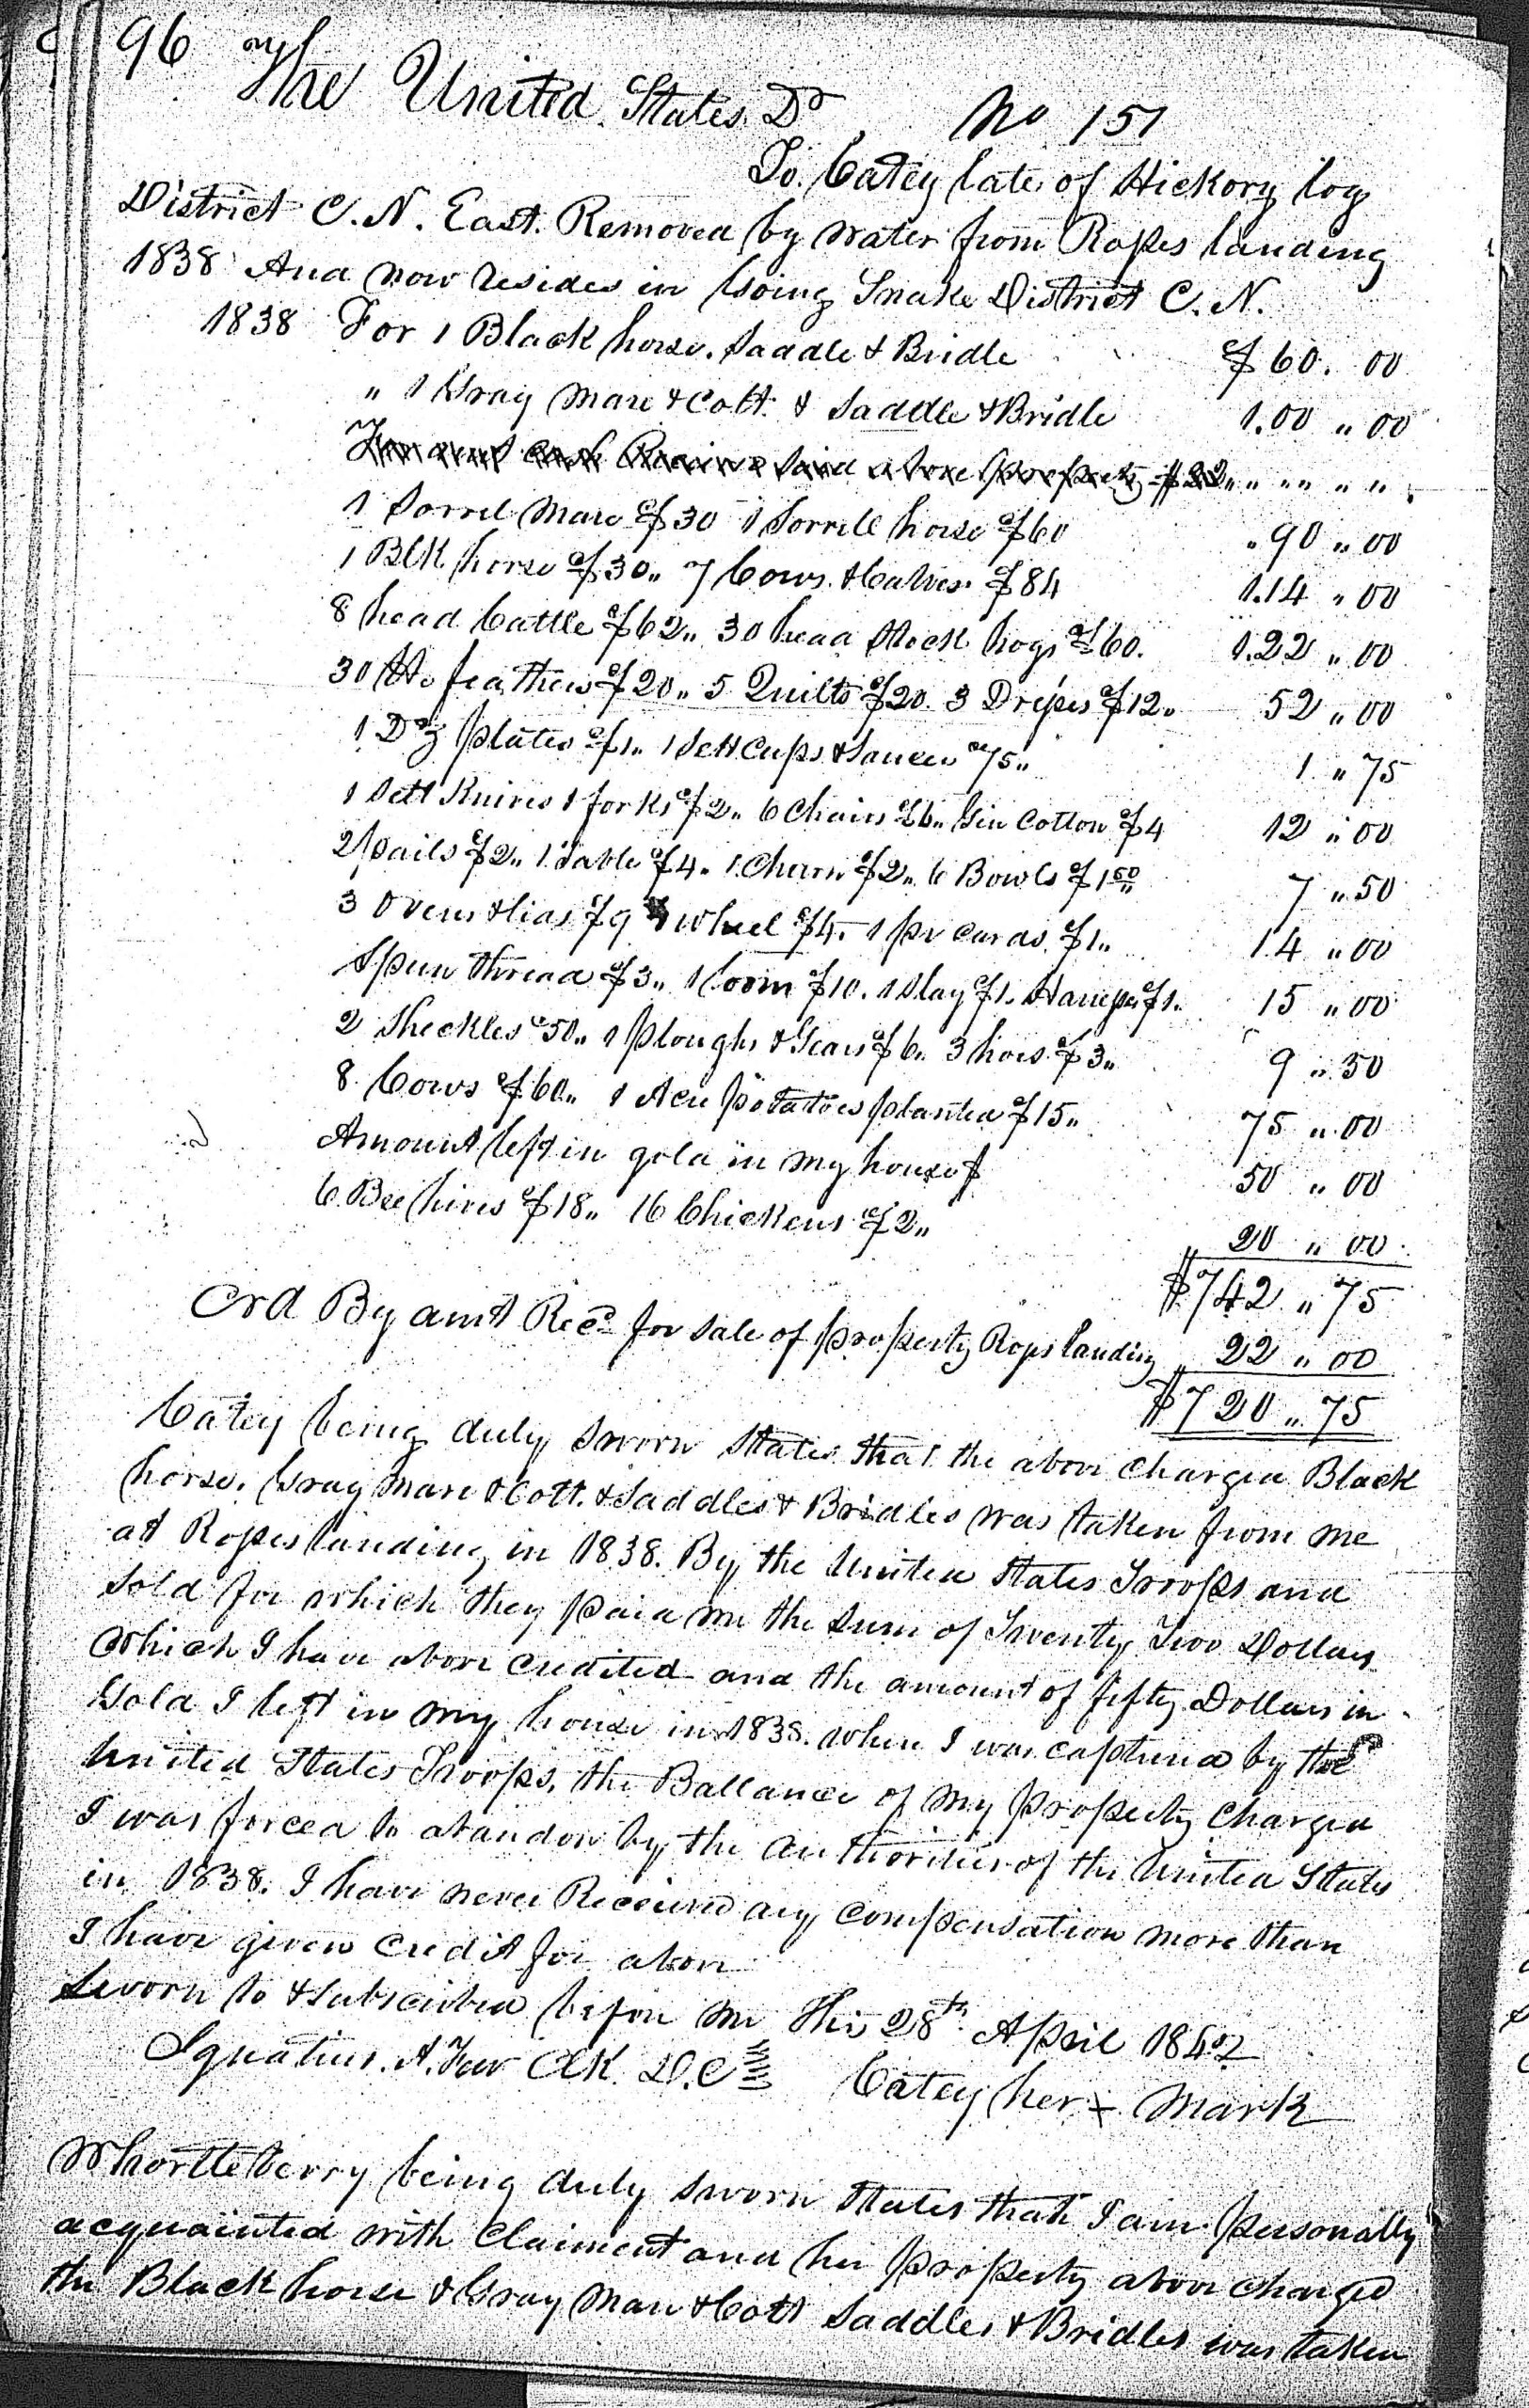 96 The United States Dr No 151
To Catey late of Hickory log
District C. N. East. Removed by water from Ropes landing
1838 And now resides in Going Snake District C. N.
1838 For 1 Black horse. Saddle & Bridle $60. 00
" 1 Gray Mare & Colt. & Saddle & Bridle 1.00 " 00
1 Sorrel Mare $30 1 Sorrell horse $60 " 90 " 00
1 Blk horse $30 " 7 Cows & Calves $84 1.14 " 00
8 head Cattle $62 " 30 head Stock hogs $60. 1.22 " 00
30 lbs feathers $20 " 5 Quilts $20. 3 Dreſses $12 " 52 " 00
1 Dz plates $1 " 1 Sett Cups & Saucers 75 " 1 " 75
1 Sett Knives & forks $2 " 6 Chairs $6 " Gin Cotton $4 12 " 00
2 pails $2 " 1 Table $4 " 1 Churn $2 " 6 Bowls $1 50 7 " 50
3 Ovens & lids $9 1 wheel $4. 1 pr cards $1 " 14 " 00
Spun thread $3 " 1 loom $10. 1 Slay $1. $1. 15 " 00
2 Sheckles 50 " 1 ploughs & Gears $6 " 3 hoes $3 " 9 " 50
8 Cows $60 " 1 Acre potatoes planted $15 " 75 " 00
Amount left in gold in my house $ 50 " 00
6 Bee hives $18 " 16 Chickens $2 " " 20 " 00
$742 " 75
Crd By amt Recd for sale of property Ropes landing " 22 " 00
$720 " 75
Catey being duly sworn States that the above charged Black
horse. Gray Mare & Colt. & Saddles & Bridles was taken from me
at Ropes landing in 1838. By the United States Troops and
Sold for which they paid me the Sum of Twenty Two Dollars
Which I have above credited and the amount of fifty Dollars in
Gold I left in my house in 1838. when I was captured by the
United States Troops. the Ballance of my property charged
I was forced to abandon by the authorities of the United States
in 1838. I have never Received any compensation more than
I have given credit for above
Sworn to & subscribed before me this 28th April 1842
Ignatius. A. Few Clk. D. C Catey her x mark
Whortleberry being duly sworn States that I am personally
acquainted with Claiment and her property above charged
the Black horse & Gray Mare & Colt Saddles & Bridles was taken